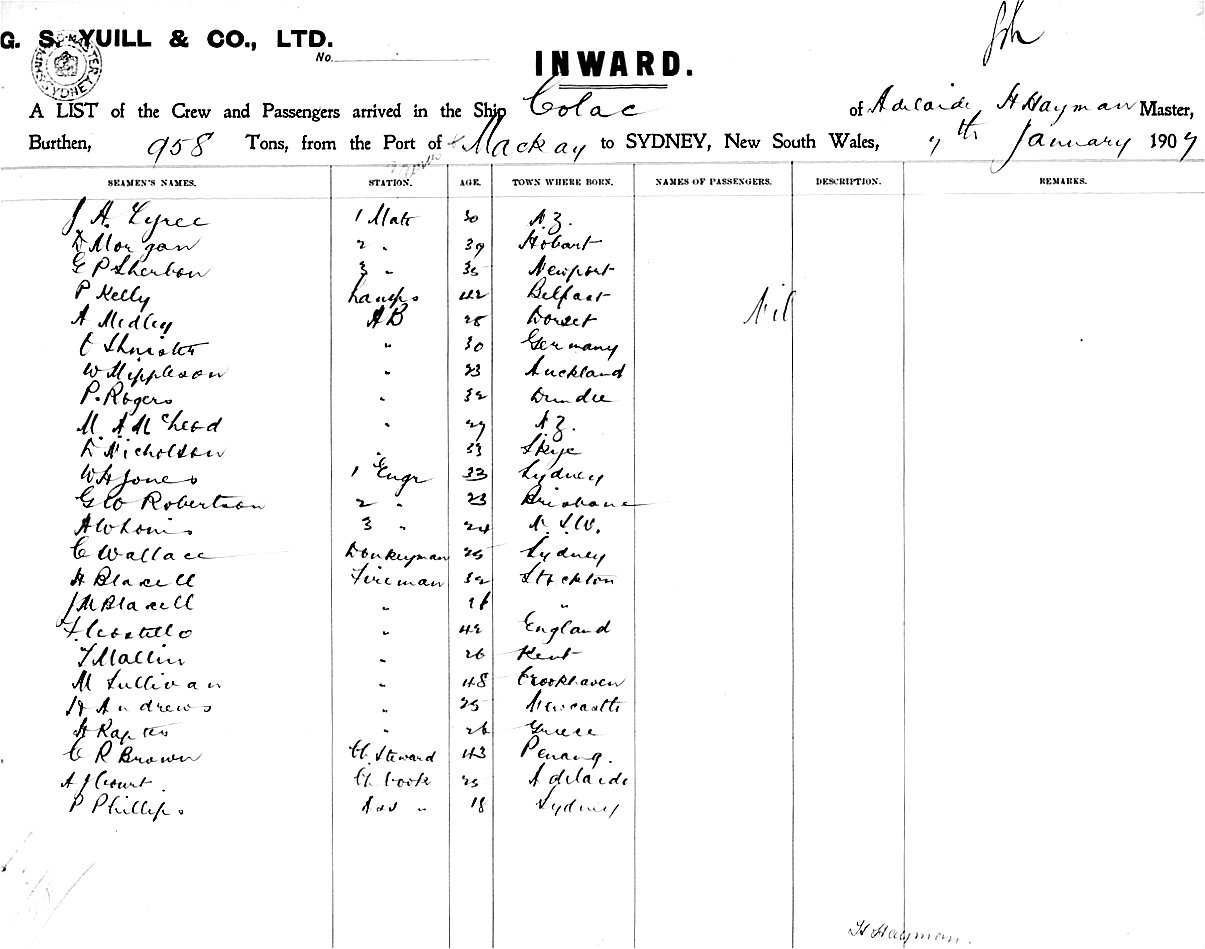 G. S. YUILL & CO., LTD.
No.
INWARD.
A LIST of the Crew and Passengers arrived in the Ship Colac of Adelaide, H Hayman Master,
Burthen, 958 Tons, from the Port of Mackay to SYDNEY, New South Wales, 7th January 1907
SEAMEN'S NAMES. STATION. AGE. TOWN WHERE BORN. NAMES OF PASSENGERS. DESCRIPTION. REMARKS.
J A 1 Mate 30 N.Z.
D Morgan 2 " 39 Hobart
G P Sherbon 3 " 35 Newport
P Kelly Lamps 42 Belfast Nil
A Medley AB 28 Dorset
" 30 Germany
W Mippleson " 23 Auckland
P. Rogers " 32 Dundee
" 29 N.Z.
D Nicholson " 33 Skye
W H Jones 1 Engr 33 Sydney
Geo Robertson 2 " 23 Brisbane
A W 3 " 24 N.S.W.
C Wallace Donkeyman 25 Sydney
H Blaxell Fireman 32 Stockton
J M Blaxell " "
Costello " 42 England
T Mallin " 26 Kent
M Sullivan " 48 Crookhaven
H Andrews " 25 Newcastle
H " 26 Greece
C R Brown Ch. Steward 43 Penang.
A J Court. Ch Cook 25 Adelaide
P Phillips Ass " 18 Sydney
H Hayman.